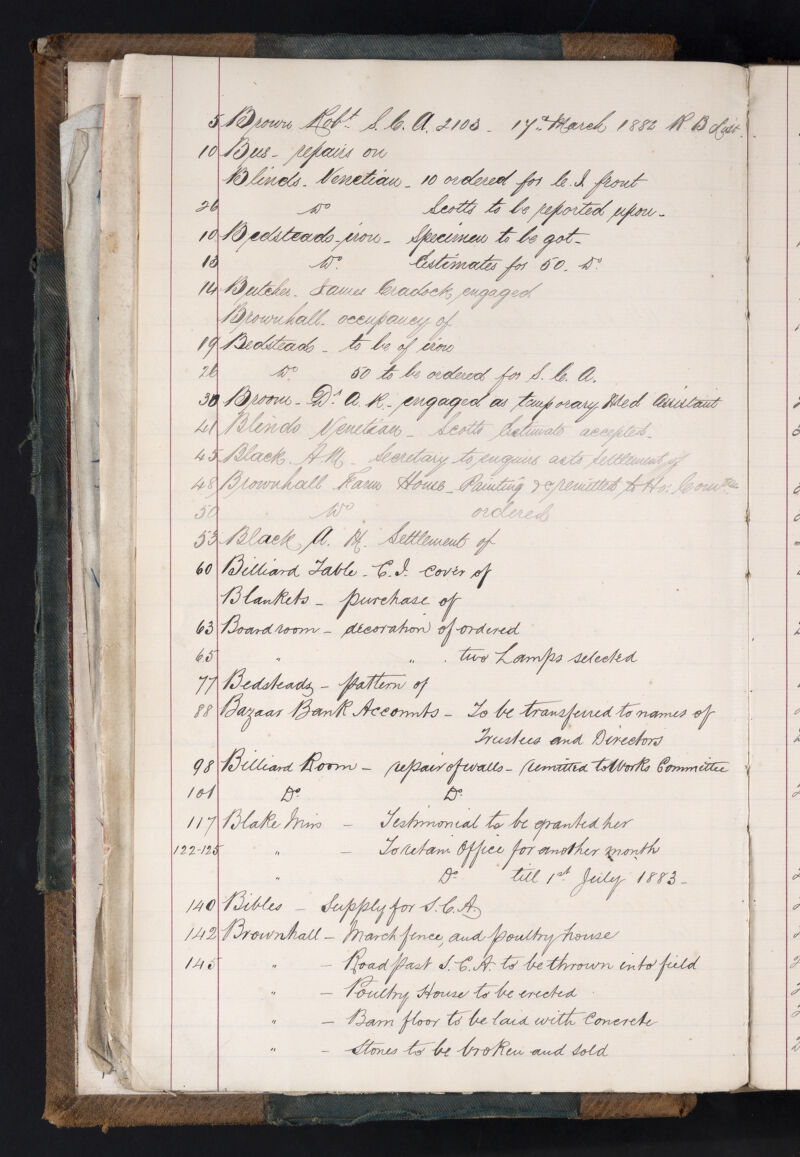 5 Brown Robt. S. C. A. 2103 - 17th March 1882 R B List
10 Bus - repairs on
Blinds - Venetian - 10 ordered for C. I. front
26 Do Scotts to be reported upon -
10 Bedsteads, iron - Specimen to be got -
13 Do. Estimates for 50. Do.
14 Butcher. James Cradock, engaged
Brownhall. occupancy of
19 Bedsteads - to be of iron
26 Do. 50 to be ordered for S. C. A.
30 Broom - Dr. A. R. - engaged as temporary Med Assistant
41 Blinds Venetian - Scotts Estimate accepted -
45 Black A M - Secretary to enquire as to settlement of
48 Brownhall Farm House - Painting &c remitted to Ho: Comttee
50 Do ordered
53 Black A. M. Settlement of
60 Billiard Table - C. I. cover of
Blankets - purchase of
63 Boardroom - decoration of ordered
65 " " . two Lamps selected
77 Bedsteads - pattern of
88 Bazaar Bank Accounts - To be transferred to names of
Trustees and Directors
98 Billiard Room - repair of walls - remitted to Works Committee
101 Do Do
117 Blake Miss - Testimonial to be granted her
122-125 " - To retain Office for another month
" Do till 1st July 1883 -
140 Bibles - Supply for S. C. A.
142 Brownhall - March fence, and poultry house
145 " - Road past S. C. A. to be thrown into field
" - Poultry House to be erected
" - Barn floor to be laid with Concrete
" - Stones to be broken and sold